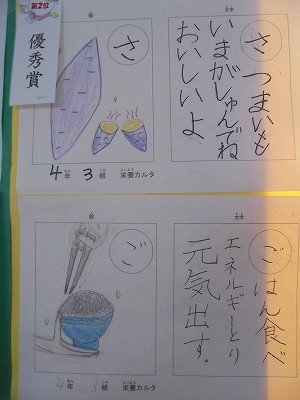 第2位
優秀賞
絵
さ
4年 3組 栄養カルタ
文字
さつまいも
いまがしゅんでね
おいしいよ
絵
ご
4年 3組 栄養カルタ
文字
ごはん食べ
エネルギーとり
元気出す。